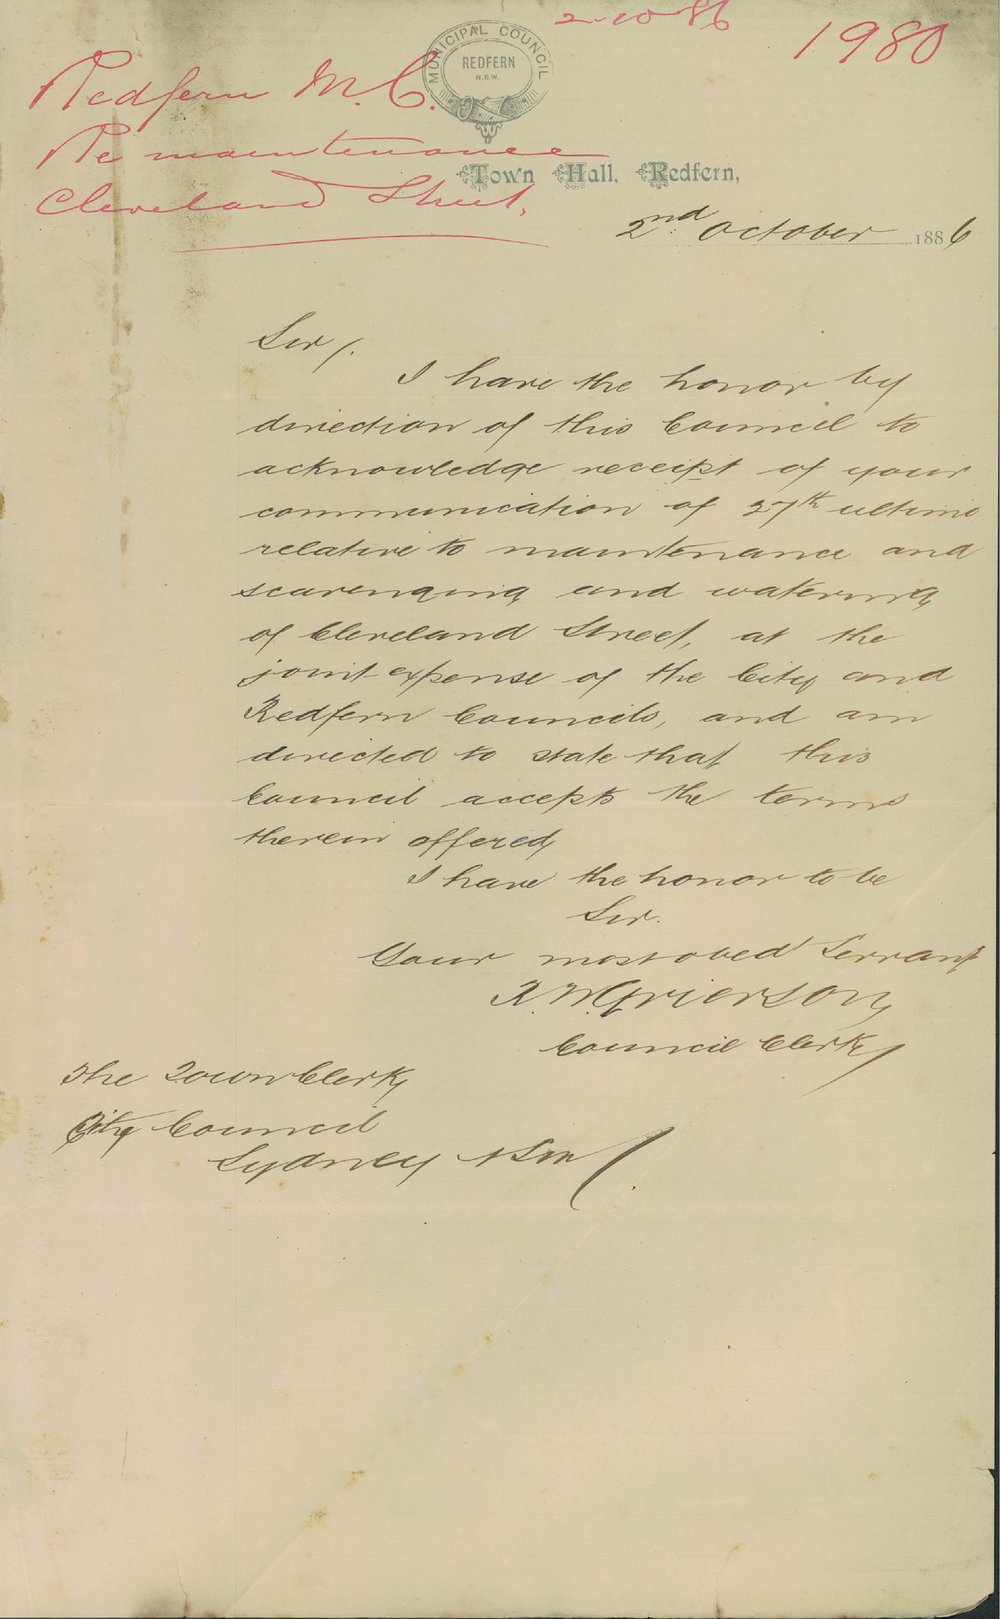 2-10-86
1980
MUNICIPAL COUNCIL
REDFERN
N.S.W.
Redfern M.C.
Re maintenance
Cleveland Street,
Town Hall, Redfern,
2nd October 1886
Sir/.
I have the honor by
direction of this Council to
acknowledge receipt of your
communication of 27th ultimo
relative to maintenance and
scavenging and watering
of Cleveland Street, at the
joint expense of the City and
Redfern Councils, and am
directed to state that this
Council accepts the terms
therein offered
I have the honor to be
Sir.
Your most obed Servant
Grierson
Council Clerk
The Town Clerk
City Council
Sydney